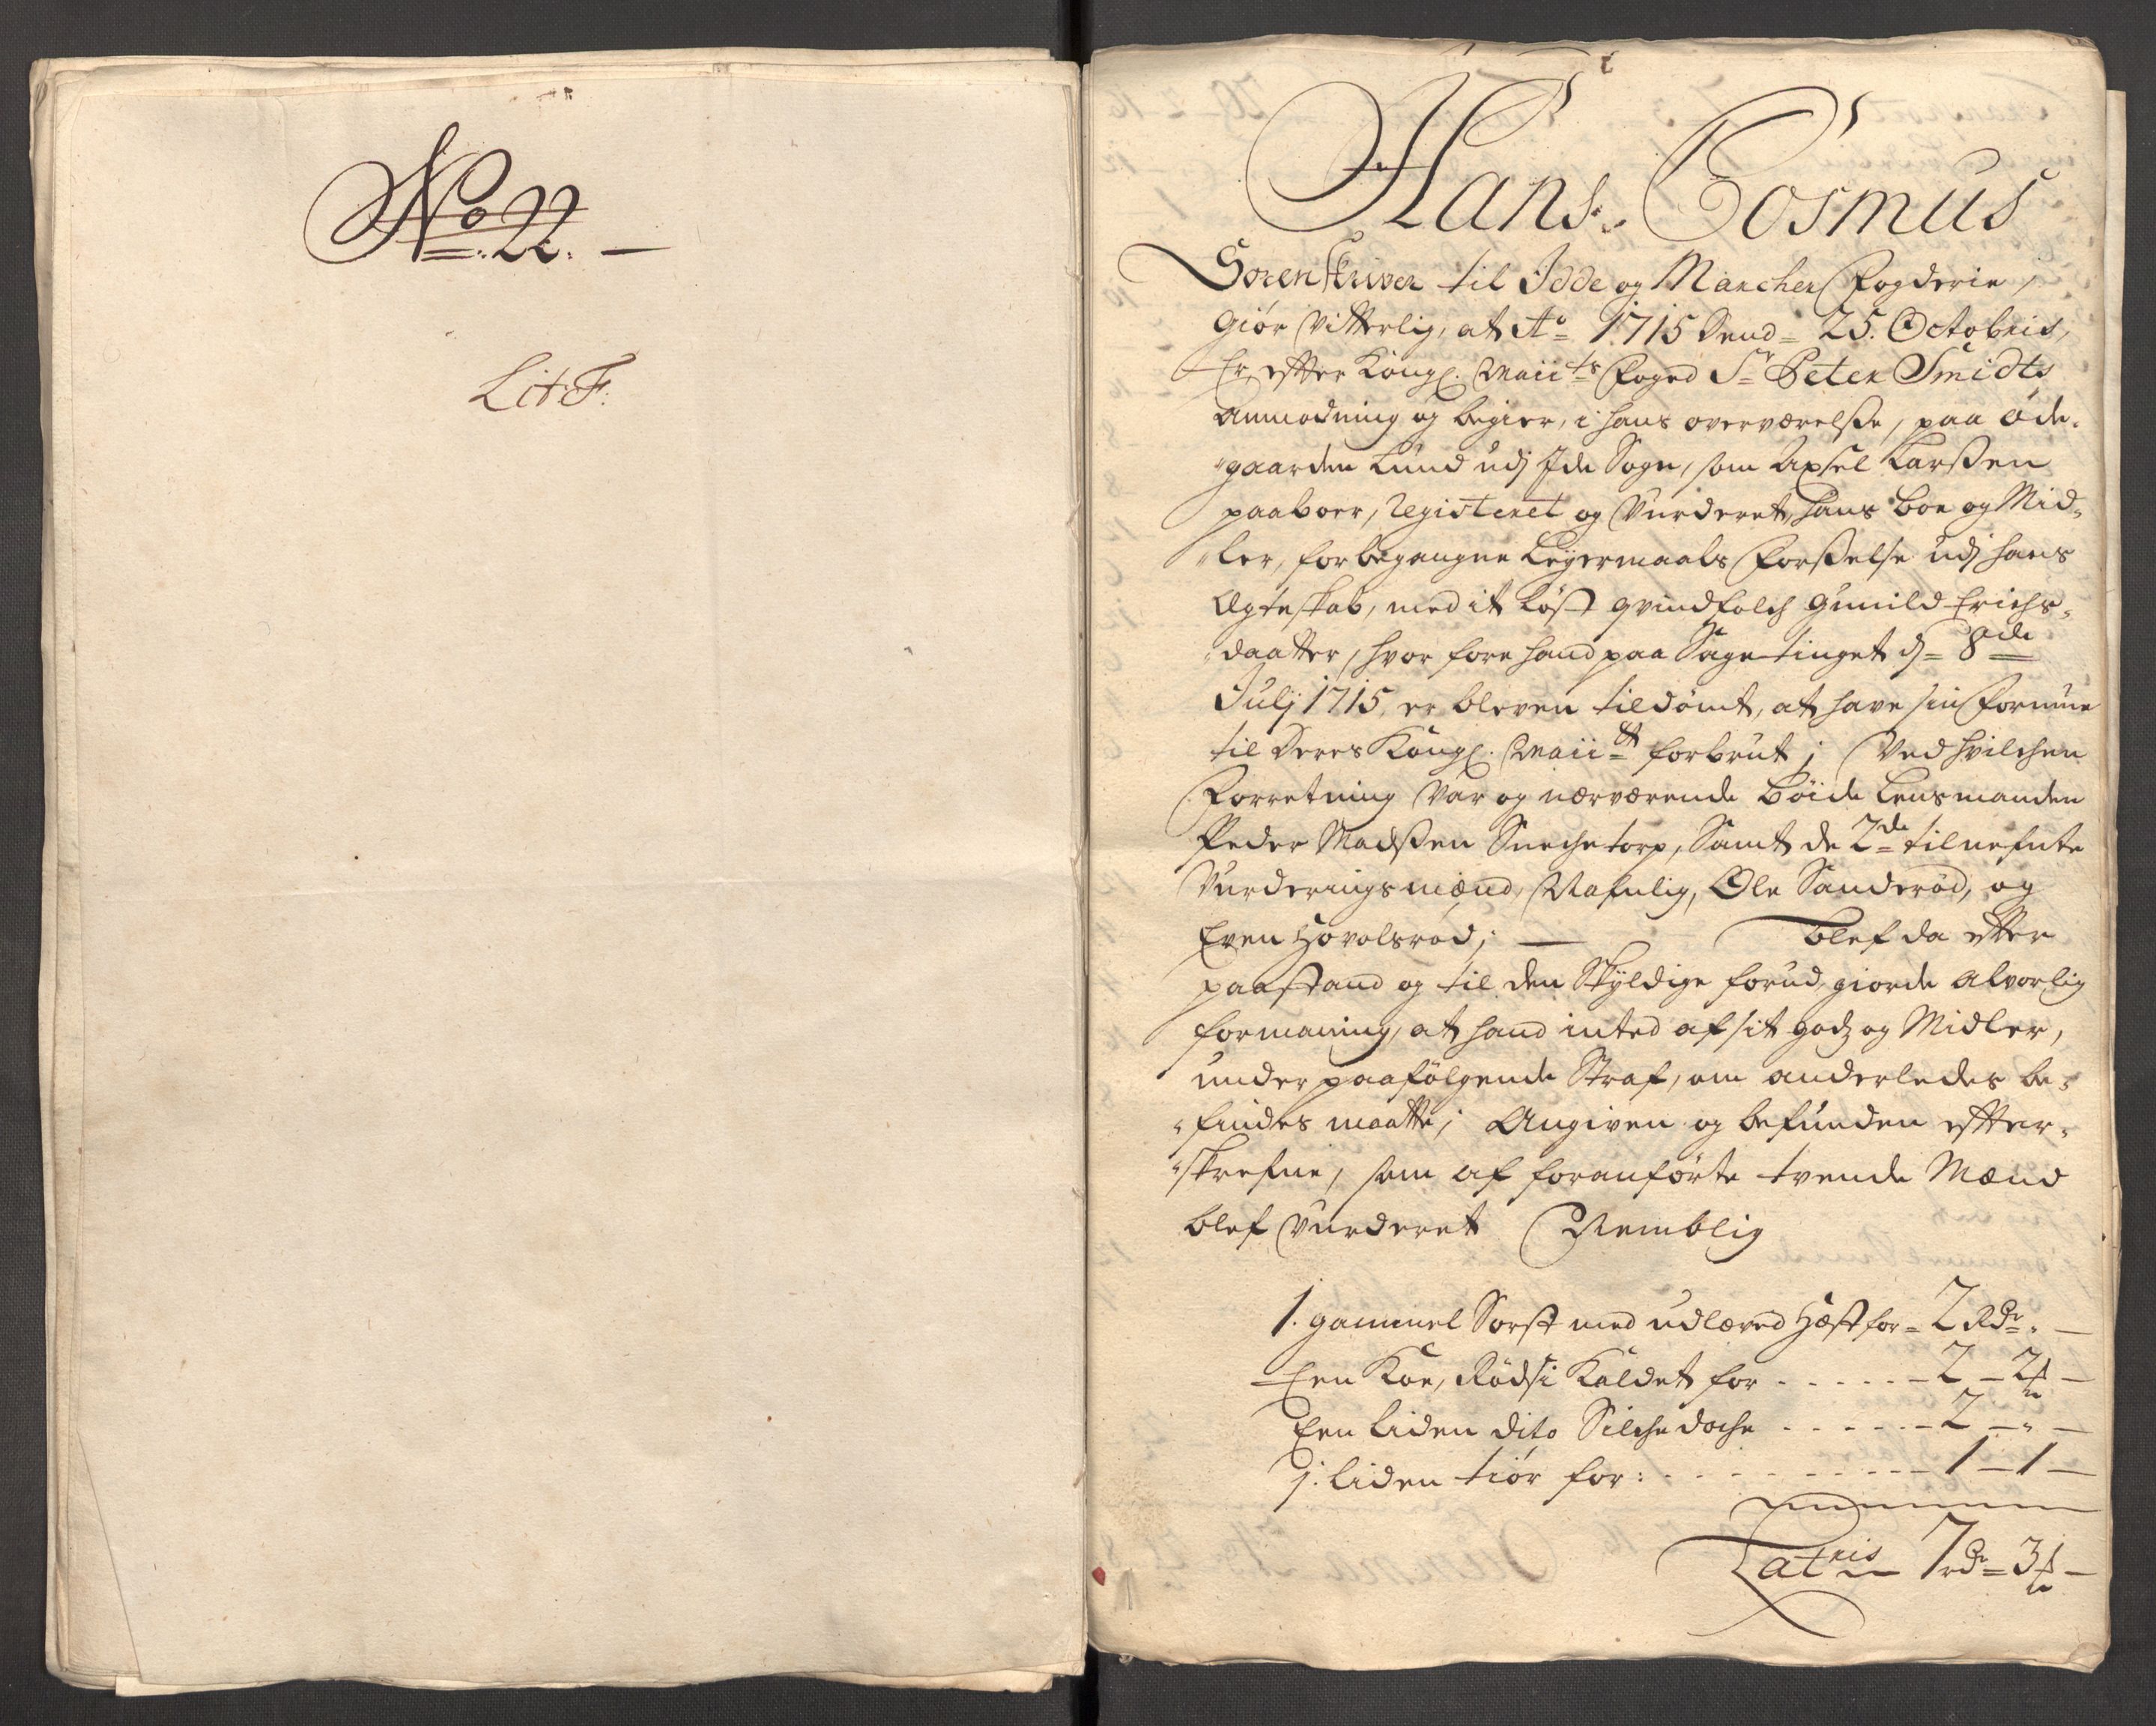 No 22. —
Lit F:
Hans Cosmus
Sorenskriver til Idde og Marcher Fogderie,
Giør vitterlig, at Ao 1715 dend 25. Octobris,
Er, efter Kongl. Maiits Foged Sr Peter Smidts
anmodning og begier, i hans overværelsse, paa øde-
gaarden Lund udj Ide Sogn, som Axsel Larssen
paaboer, Registeret og Vurderet, hans boe og Mid-
ler, for begangne Leyermaals Forseelse udj hans
Ægteskab, med it Løst qvindfolch Gunild Erichs-
daatter, hvor fore hand paa Sage-tinget d. 8de
Julj 1715, er bleven tildømt, at have sin formue
til Deres Kongl. Maiit forbrut; Ved hvilchen
Forretning var og nærværende Bøide Lensmanden
Peder Madssen Snechetorp, Samt de 2de tilnefnte
Vurderings mænd, Nafnlig, Ole Sanderød, og
Even Hovolsrød; — blef da efter
paastand og til den Skyldige forud, giorde alvorlig
formaning, at hand inted af sit godz og Midler,
under paafølgende Straf, om anderledes be-
findes maatte; Angiven og befunden efter-
skrefne, som af foranførte tvende Mænd
blef vurderet Nemblig
1. gammel Sorst med udlæved Hæst for = 2 Rdr. —
Een Koe, Rødsi Kaldet for - - - - - 2 - 2 —
Een liden dito Silchedoche - - - - - 2 - " —
1. liden tiør for: - - - - - - - - - 1 - 1 —
Latris 7 rdr 3 —